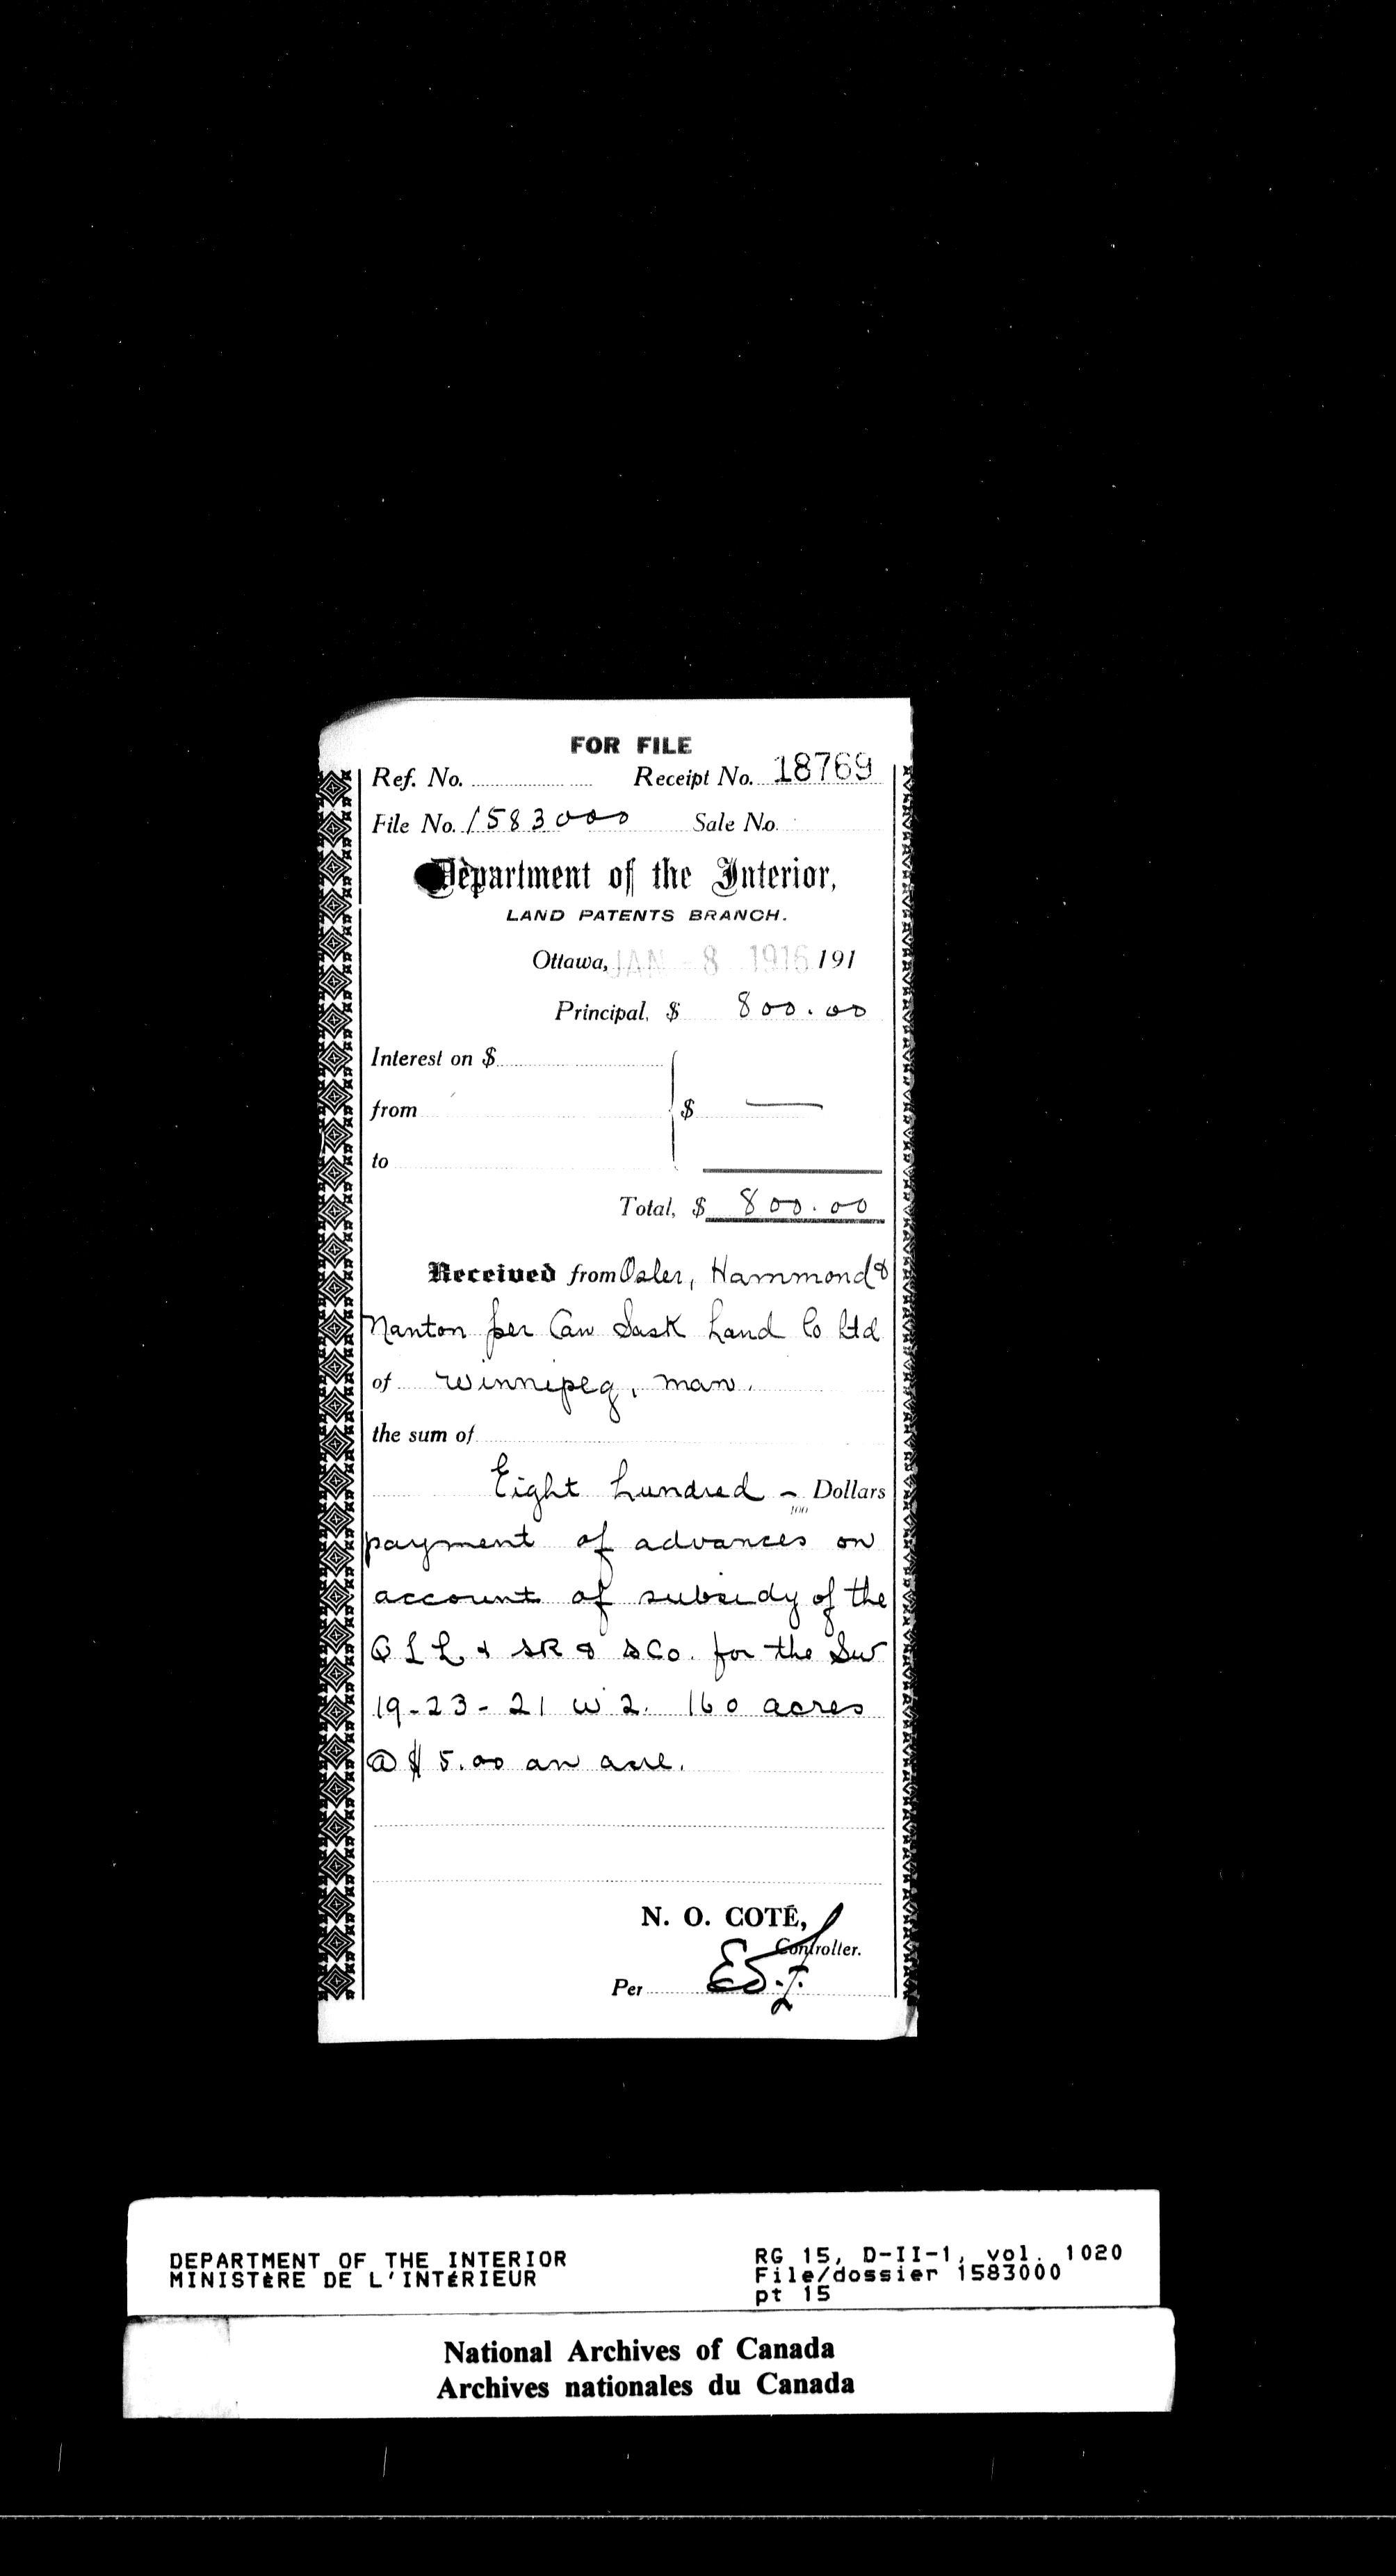 FOR FILE
Ref. No. Receipt No. 18769
File No. 1583000 Sale No.
Department of the Interior,
LAND PATENTS BRANCH.
Ottawa, JAN - 8 1916 191
Principal, $ 800.00
Interest on $
from $ —
to
Total, $ 800.00
Received from Osler, Hammond &
Nanton per Can Sask Land Co Ltd
of Winnipeg, Man.
the sum of
Eight hundred – Dollars
100
payment of advances on
account of subsidy of the
Q L L & SR & SCo. for the SW
19-23-21 W 2. 160 acres
@ $ 5.00 an acre.
N. O. COTÉ,
Controller.
Per
DEPARTMENT OF THE INTERIOR RG 15, D-II-1, vol. 1020
MINISTÈRE DE L'INTÉRIEUR File/dossier 1583000
pt 15
National Archives of Canada
Archives nationales du Canada